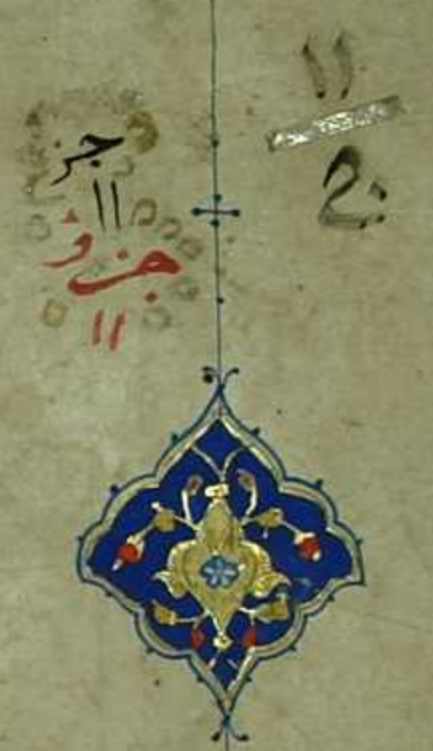 ١١
جز
١١
جزؤ
١١